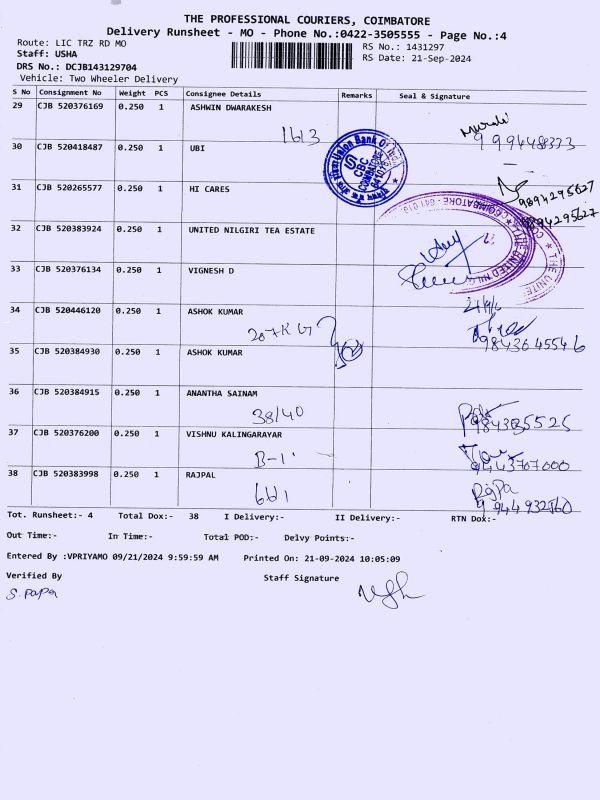 THE PROFESSIONAL COURIERS, COIMBATORE
Delivery Runsheet - MO - Phone No.:0422-3505555 - Page No.:4
Route: LIC TRZ RD MO
RS No.: 1431297
Staff: USHA
RS Date: 21-Sep-2024
DRS No.: DCJB143129704
Vehicle: Two Wheeler Delivery
S No Consignment No Weight PCS Consignee Details Remarks Seal & Signature
29 CJB 520376169 0.250 1 ASHWIN DWARAKESH
1613
30 CJB 520418487 0.250 1 UBI
31 CJB 520265577 0.250 1 HI CARES
9894295627
9894295627
32 CJB 520383924 0.250 1 UNITED NILGIRI TEA ESTATE
33 CJB 520376134 0.250 1 VIGNESH D
34 CJB 520446120 0.250 1 ASHOK KUMAR
207K G
9843645546
35 CJB 520384930 0.250 1 ASHOK KUMAR
36 CJB 520384915 0.250 1 ANANTHA SAINAM
38/40
37 CJB 520376200 0.250 1 VISHNU KALINGARAYAR
B-1
38 CJB 520383998 0.250 1 RAJPAL
Tot. Runsheet:- 4 Total Dox:- 38 I Delivery:- II Delivery:- RTN Dox:-
Out Time:- In Time:- Total POD:- Delvy Points:-
Entered By :VPRIYAMO 09/21/2024 9:59:59 AM Printed On: 21-09-2024 10:05:09
Verified By Staff Signature
S. Papa